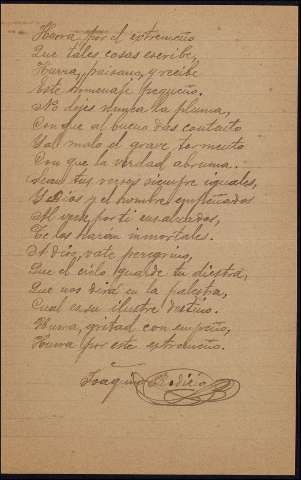 Hurra por el extremeño
Que tales cosas escribe,
Hurra, paisano, y recibe
Este homenaje pequeño.
No dejes nunca la pluma,
Con que al bueno das contento
Y al malo el grave tormento
Con que la verdad abruma.
Sean tus versos siempre iguales,
Y Dios y el hombre empeñados
Al ver por ti ensalzados,
Te los harán inmortales.
Adios, vate peregrino,
Que el cielo guarde tu diestra,
Que nos dirá en la palestra,
Cual es su ilustre destino.
Hurra, gritad con empeño,
Hurra por este extremeño.
Joaquin